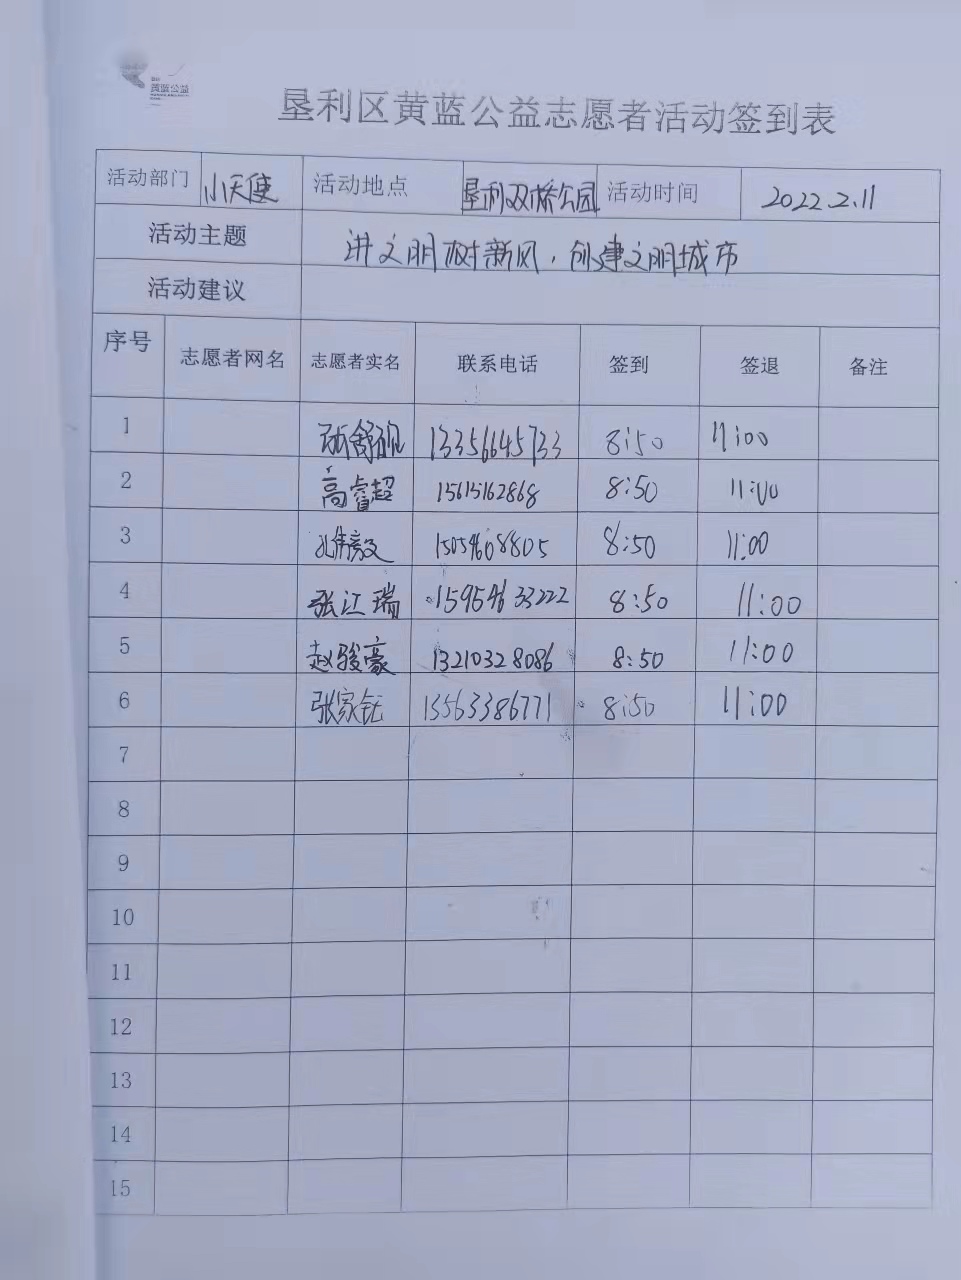 黄蓝公益
垦利区黄蓝公益志愿者活动签到表
活动部门 小天使 活动地点 垦利双桥公园 活动时间 2022.2.11
活动主题 讲文明树新风，创建文明城市
活动建议
序号 志愿者网名 志愿者实名 联系电话 签到 签退 备注
1 13356645733 8:50 11:00
2 高睿超 15615162868 8:50 11:00
3 15054608805 8:50 11:00
4 张江瑞 15954633222 8:50 11:00
5 赵骏豪 13210328086 8:50 11:00
6 张家钰 13563386771 8:50 11:00
7
8
9
10
11
12
13
14
15